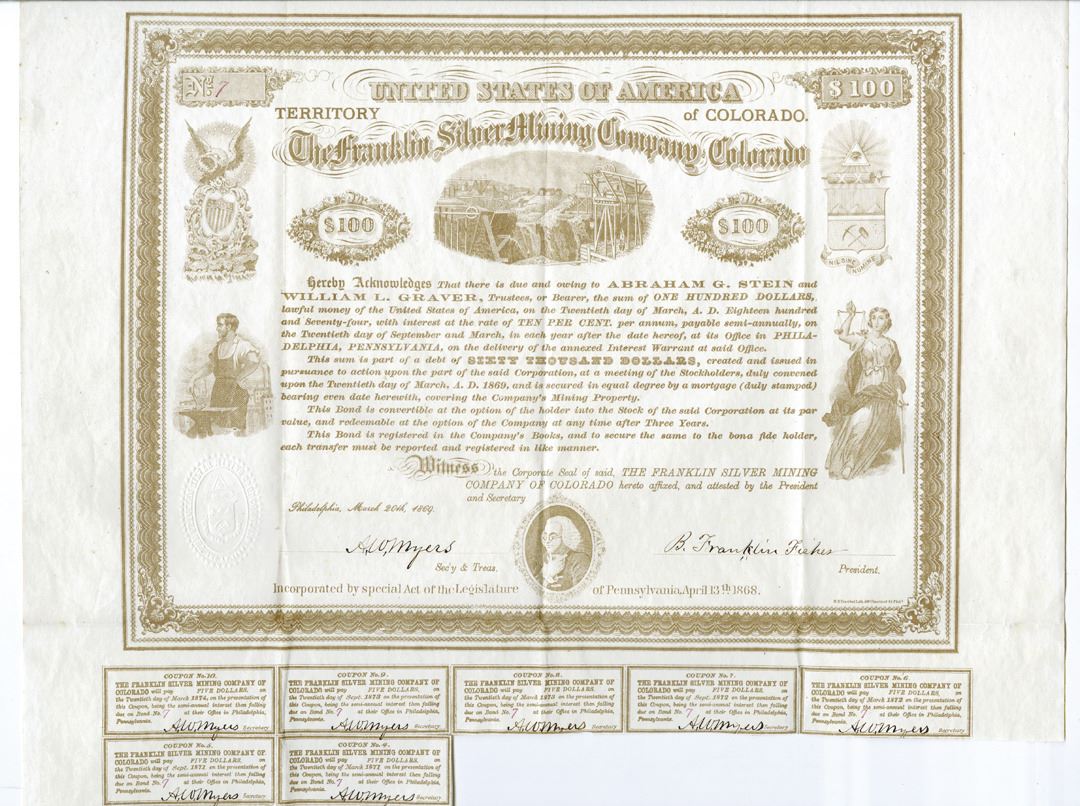 No. 7
UNITED STATES OF AMERICA
$100
TERRITORY of COLORADO.
The Franklin Silver Mining Company, Colorado
$100
$100
NIL SINE NUMINE
Hereby Acknowledges That there is due and owing to ABRAHAM G. STEIN and
WILLIAM L. GRAVER, Trustees, or Bearer, the sum of ONE HUNDRED DOLLARS,
lawful money of the United States of America, on the Twentieth day of March, A. D. Eighteen hundred
and Seventy-four, with interest at the rate of TEN PER CENT. per annum, payable semi-annually, on
the Twentieth day of September and March, in each year after the date hereof, at its Office in PHILA-
DELPHIA, PENNSYLVANIA, on the delivery of the annexed Interest Warrant at said Office.
This sum is part of a debt of SIXTY THOUSAND DOLLARS, created and issued in
pursuance to action upon the part of the said Corporation, at a meeting of the Stockholders, duly convened
upon the Twentieth day of March, A. D. 1869, and is secured in equal degree by a mortgage (duly stamped)
bearing even date herewith, covering the Company's Mining Property.
This Bond is convertible at the option of the holder into the Stock of the said Corporation at its par
value, and redeemable at the option of the Company at any time after Three Years.
This Bond is registered in the Company's Books, and to secure the same to the bona fide holder,
each transfer must be reported and registered in like manner.
Witness the Corporate Seal of said, THE FRANKLIN SILVER MINING
COMPANY OF COLORADO hereto affixed, and attested by the President
and Secretary
Philadelphia, March 20th, 1869.
A.W. Myers
Sec'y & Treas.
B. Franklin Fisher
President.
Incorporated by special Act of the Legislature of Pennsylvania, April 13th 1868.
COUPON No. 10.
THE FRANKLIN SILVER MINING COMPANY OF
COLORADO will pay FIVE DOLLARS, on
the Twentieth day of March 1874, on the presentation of
this Coupon, being the semi-annual interest then falling
due on Bond No. 7 at their Office in Philadelphia,
Pennsylvania.
A.W. Myers Secretary
COUPON No. 9.
THE FRANKLIN SILVER MINING COMPANY OF
COLORADO will pay FIVE DOLLARS, on
the Twentieth day of Sept. 1873 on the presentation of
this Coupon, being the semi-annual interest then falling
due on Bond No. 7 at their Office in Philadelphia,
Pennsylvania.
A.W. Myers Secretary
COUPON No. 8.
THE FRANKLIN SILVER MINING COMPANY OF
COLORADO will pay FIVE DOLLARS, on
the Twentieth day of March 1873 on the presentation of
this Coupon, being the semi-annual interest then falling
due on Bond No. 7 at their Office in Philadelphia,
Pennsylvania.
A.W. Myers Secretary
COUPON No. 7.
THE FRANKLIN SILVER MINING COMPANY OF
COLORADO will pay FIVE DOLLARS, on
the Twentieth day of Sept. 1872 on the presentation of
this Coupon, being the semi-annual interest then falling
due on Bond No. 7 at their Office in Philadelphia,
Pennsylvania.
A.W. Myers Secretary
COUPON No. 6.
THE FRANKLIN SILVER MINING COMPANY OF
COLORADO will pay FIVE DOLLARS, on
the Twentieth day of March 1872 on the presentation of
this Coupon, being the semi-annual interest then falling
due on Bond No. 7 at their Office in Philadelphia,
Pennsylvania.
A.W. Myers Secretary
COUPON No. 5.
THE FRANKLIN SILVER MINING COMPANY OF
COLORADO will pay FIVE DOLLARS, on
the Twentieth day of Sept. 1871 on the presentation of
this Coupon, being the semi-annual interest then falling
due on Bond No. 7 at their Office in Philadelphia,
Pennsylvania.
A.W. Myers Secretary
COUPON No. 4.
THE FRANKLIN SILVER MINING COMPANY OF
COLORADO will pay FIVE DOLLARS, on
the Twentieth day of March 1871 on the presentation of
this Coupon, being the semi-annual interest then falling
due on Bond No. 7 at their Office in Philadelphia,
Pennsylvania.
A.W. Myers Secretary